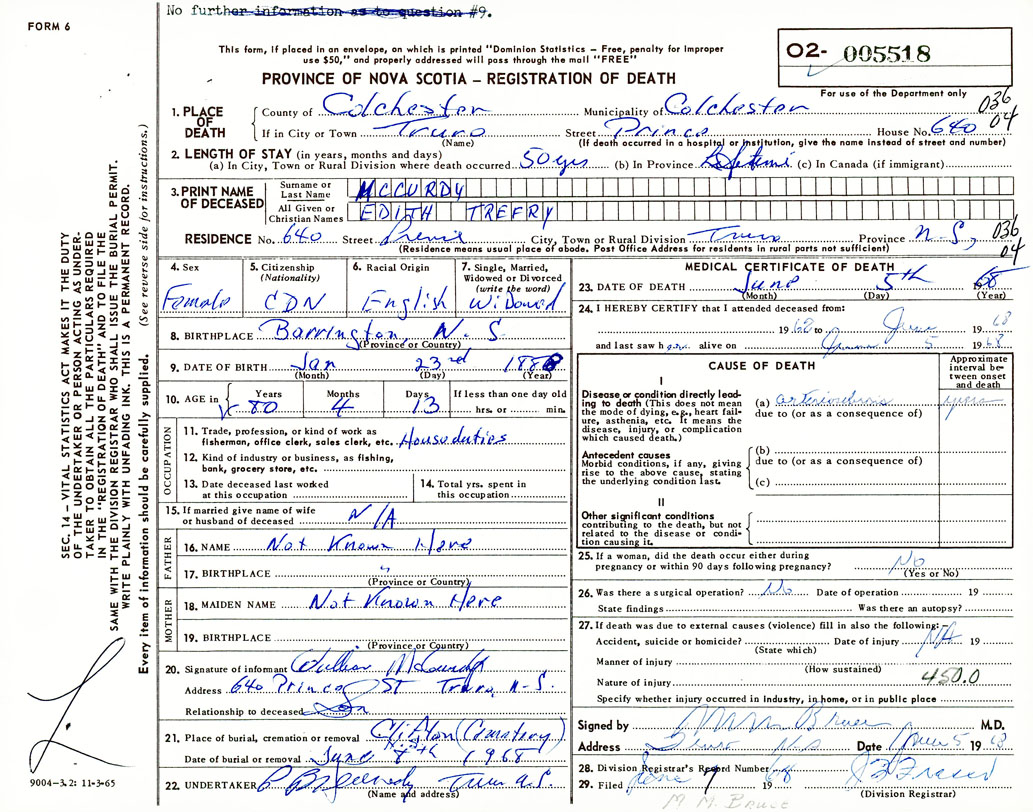 No further information as to question #9.
FORM 6
This form, if placed in an envelope, on which is printed "Dominion Statistics – Free, penalty for improper
use $50," and properly addressed will pass through the mail "FREE"
O2- 005518
PROVINCE OF NOVA SCOTIA – REGISTRATION OF DEATH
For use of the Department only
036
04
1. PLACE OF DEATH
County of Colchester Municipality of Colchester
If in City or Town Truro Street Prince House No. 640
(Name) (If death occurred in a hospital or institution, give the name instead of street and number)
2. LENGTH OF STAY (in years, months and days)
(a) In City, Town or Rural Division where death occurred 50 yrs (b) In Province (c) In Canada (if immigrant)
3. PRINT NAME OF DECEASED
Surname or Last Name MCCURDY
All Given or Christian Names EDITH TREFRY
RESIDENCE No. 640 Street Prince City, Town or Rural Division Truro Province N-S,
036
04
(Residence means usual place of abode. Post Office Address for residents in rural parts not sufficient)
4. Sex
Female
5. Citizenship (Nationality)
CDN
6. Racial Origin
English
7. Single, Married, Widowed or Divorced (write the word)
Widowed
8. BIRTHPLACE Barrington, N. S
(Province or Country)
9. DATE OF BIRTH Jan 23rd 1888
(Month) (Day) (Year)
10. AGE in Years 80 Months 4 Days 13 If less than one day old
hrs. or min.
OCCUPATION
11. Trade, profession, or kind of work as
fisherman, office clerk, sales clerk, etc. House duties
12. Kind of industry or business, as fishing,
bank, grocery store, etc.
13. Date deceased last worked
at this occupation
14. Total yrs. spent in
this occupation
15. If married give name of wife
or husband of deceased N/A
FATHER
16. NAME Not Known Here
17. BIRTHPLACE "
(Province or Country)
MOTHER
18. MAIDEN NAME Not Known Here
19. BIRTHPLACE
(Province or Country)
20. Signature of informant McCurdy
Address 640 Prince ST Truro, N-S.
Relationship to deceased Son
21. Place of burial, cremation or removal Clifton (Cemetery)
N-S
Date of burial or removal June 8th 1968
22. UNDERTAKER Truro N.S.
(Name and address)
MEDICAL CERTIFICATE OF DEATH
23. DATE OF DEATH June 5th 68
(Month) (Day) (Year)
24. I HEREBY CERTIFY that I attended deceased from:
1962 to June 1968
and last saw her alive on June 5 1968
CAUSE OF DEATH
Approximate interval between onset and death
I
Disease or condition directly leading to death (This does not mean
the mode of dying, e.g., heart failure, asthenia, etc. It means the
disease, injury, or complication
which caused death.)
(a) years
due to (or as a consequence of)
Antecedent causes
Morbid conditions, if any, giving
rise to the above cause, stating
the underlying condition last.
(b)
due to (or as a consequence of)
(c)
II
Other significant conditions
contributing to the death, but not
related to the disease or condition causing it.
25. If a woman, did the death occur either during
pregnancy or within 90 days following pregnancy? No
(Yes or No)
26. Was there a surgical operation? No Date of operation 19
State findings Was there an autopsy?
27. If death was due to external causes (violence) fill in also the following:–
Accident, suicide or homicide? Date of injury N/A 19
(State which)
Manner of injury
(How sustained)
Nature of injury 450.0
Specify whether injury occurred in industry, in home, or in public place
Signed by M M Bruce M.D.
Address Truro N S Date June 5 1968
28. Division Registrar's Record Number
29. Filed June 7 68 Fraser
(Division Registrar)
M. M. BRUCE
SEC. 14 – VITAL STATISTICS ACT MAKES IT THE DUTY
OF THE UNDERTAKER OR PERSON ACTING AS UNDERTAKER TO OBTAIN ALL THE PARTICULARS REQUIRED
IN THE "REGISTRATION OF DEATH" AND TO FILE THE
SAME WITH THE DIVISION REGISTRAR WHO SHALL ISSUE THE BURIAL PERMIT.
WRITE PLAINLY WITH UNFADING INK. THIS IS A PERMANENT RECORD.
Every item of information should be carefully supplied. (See reverse side for instructions.)
9004–3.2: 11-3-65